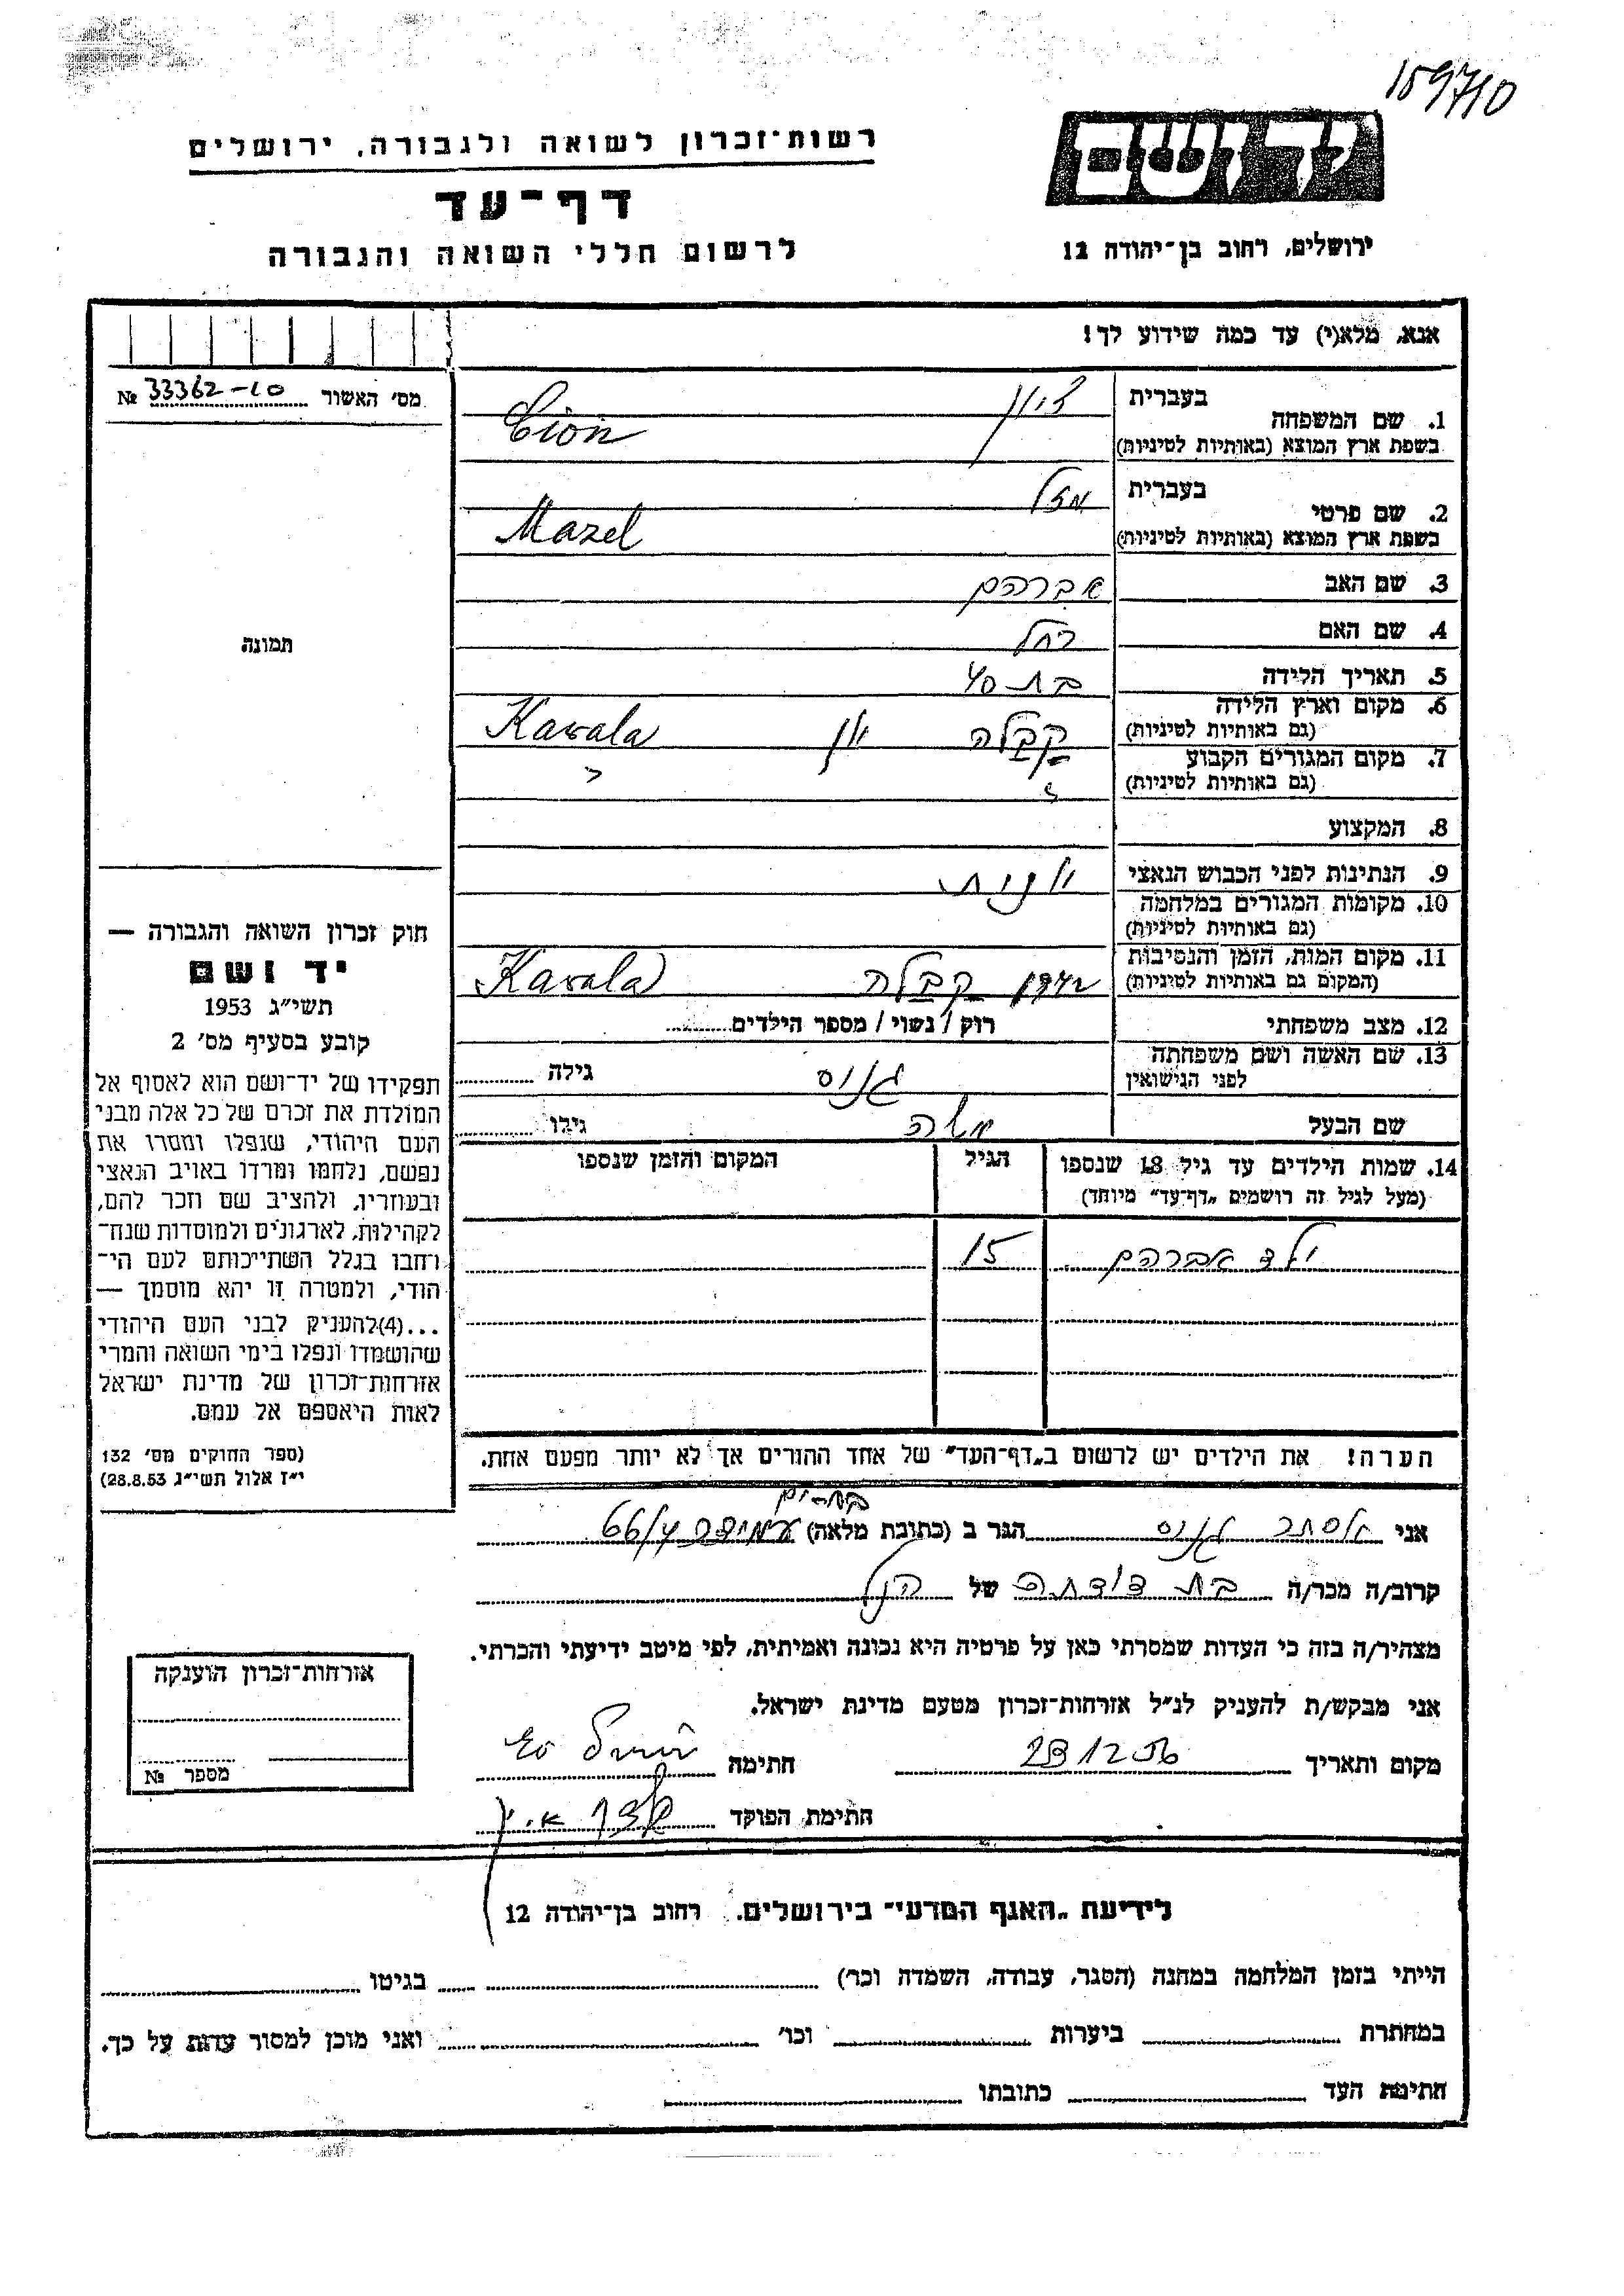 159710
רשות־זכרון לשואה ולגבורה, ירושלים
דף־עד
לרשום חללי השואה והגבורה
יד ושם
ירושלים, רחוב בן־יהודה 12
אנא, מלא(י) עד כמה שידוע לך!
מס׳ האשור 33362-10 №
תמונה
1. שם המשפחה
בעברית ציון
בשפת ארץ המוצא (באותיות לטיניות) Cion
2. שם פרטי
בעברית מזל
בשפת ארץ המוצא (באותיות לטיניות) Mazel
3. שם האב אברהם
4. שם האם רחל
5. תאריך הלידה בת 40
6. מקום וארץ הלידה
(גם באותיות לטיניות) קבלה יון Kavala
7. מקום המגורים הקבוע
(גם באותיות לטיניות) " "
8. המקצוע
9. הנתינות לפני הכבוש הנאצי יונית
10. מקומות המגורים במלחמה
(גם באותיות לטיניות)
11. מקום המות, הזמן והנסיבות
(המקום גם באותיות לטיניות) קבלה Kavala
12. מצב משפחתי רוק / נשוי / מספר הילדים
13. שם האשה ושם משפחתה
לפני הנישואין גילה
שם הבעל משה גילו
14. שמות הילדים עד גיל 18 שנספו
(מעל לגיל זה רושמים „דף־עד" מיוחד)
הגיל
המקום והזמן שנספו
ילד אברהם 15
הערה! את הילדים יש לרשום ב„דף־העד" של אחד ההורים אך לא יותר מפעם אחת.
חוק זכרון השואה והגבורה —
יד ושם
תשי״ג 1953
קובע בסעיף מס׳ 2
תפקידו של יד־ושם הוא לאסוף אל
המולדת את זכרם של כל אלה מבני
העם היהודי, שנפלו ומסרו את
נפשם, נלחמו ומרדו באויב הנאצי
ובעוזריו, ולהציב שם וזכר להם,
לקהילות, לארגונים ולמוסדות שנח־
רחבו בגלל השתייכותם לעם הי־
הודי, ולמטרה זו יהא מוסמך —
...(4)להעניק לבני העם היהודי
שהושמדו ונפלו בימי השואה והמרי
אזרחות־זכרון של מדינת ישראל
לאות היאספם אל עמם.
(ספר החוקים מס׳ 132
י״ז אלול תשי״ג 28.8.53)
בת-ים
אני אסתר הגר ב (כתובת מלאה) עמידר 66/4
קרוב/ה מכר/ה בת דודתה של הנ״ל
מצהיר/ה בזה כי העדות שמסרתי כאן על פרטיה היא נכונה ואמיתית, לפי מיטב ידיעתי והכרתי.
אני מבקש/ת להעניק לנ״ל אזרחות־זכרון מטעם מדינת ישראל.
מקום ותאריך 23 12 56 חתימה
חתימת הפוקד
אזרחות־זכרון הוענקה
מספר №
לידיעת „האגף המדעי" בירושלים. רחוב בן־יהודה 12
הייתי בזמן המלחמה במחנה (הסגר, עבודה, השמדה וכר׳) בגיטו
במחתרת ביערות וכר׳ ואני מוכן למסור עדות על כך.
חתימת העד כתובתו